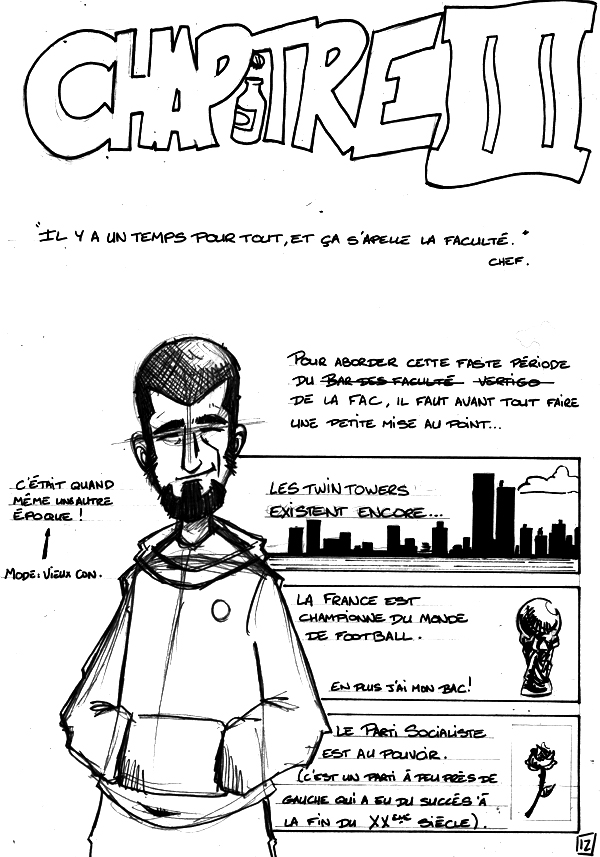 CHAPITRE III
"IL Y A UN TEMPS POUR TOUT, ET ÇA S'APELLE LA FACULTÉ."
CHEF.
POUR ABORDER CETTE FASTE PÉRIODE
DU BAR DES FACULTÉ VERTIGO
DE LA FAC, IL FAUT AVANT TOUT FAIRE
UNE PETITE MISE AU POINT...
C'ÉTAIT QUAND
MÊME UNE AUTRE
ÉPOQUE !
MODE : VIEUX CON.
LES TWIN TOWERS
EXISTENT ENCORE...
LA FRANCE EST
CHAMPIONNE DU MONDE
DE FOOTBALL.
EN PLUS J'AI MON BAC!
LE PARTI SOCIALISTE
EST AU POUVOIR.
(C'EST UN PARTI À PEU PRÈS DE
GAUCHE QUI A EU DU SUCCÉS À
LA FIN DU XXEME SIÈCLE).
12